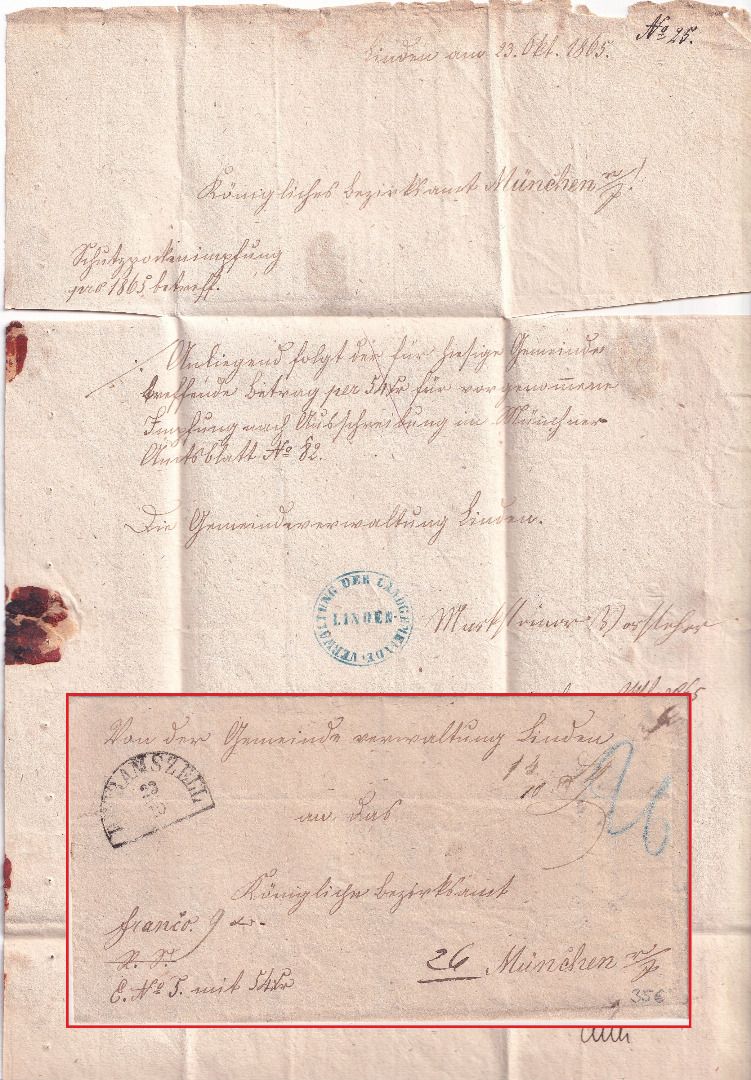 No 25.
Linden am 23. Okt. 1865.
Königliches Bezirksamt München r/I!
Schutzpockenimpfung
pro 1865 betreff.
Anliegend folgt der für hiesige Gemeinde
treffende Betrag per 54 xr für vorgenommene
Impfung nach Ausschreibung im Münchner
Amtsblatt No 82.
Die Gemeindeverwaltung Linden.
VERWALTUNG DER LANDGEMEINDE
LINDEN
Marksteiner Vorsteher
Von der Gemeindeverwaltung Linden
DIETRAMSZELL
23
10
an das
Königliche Bezirksamt
franco. 9 xr.
R. S.
E. No 5. mit 54 xr
26 München r/I
26
35€